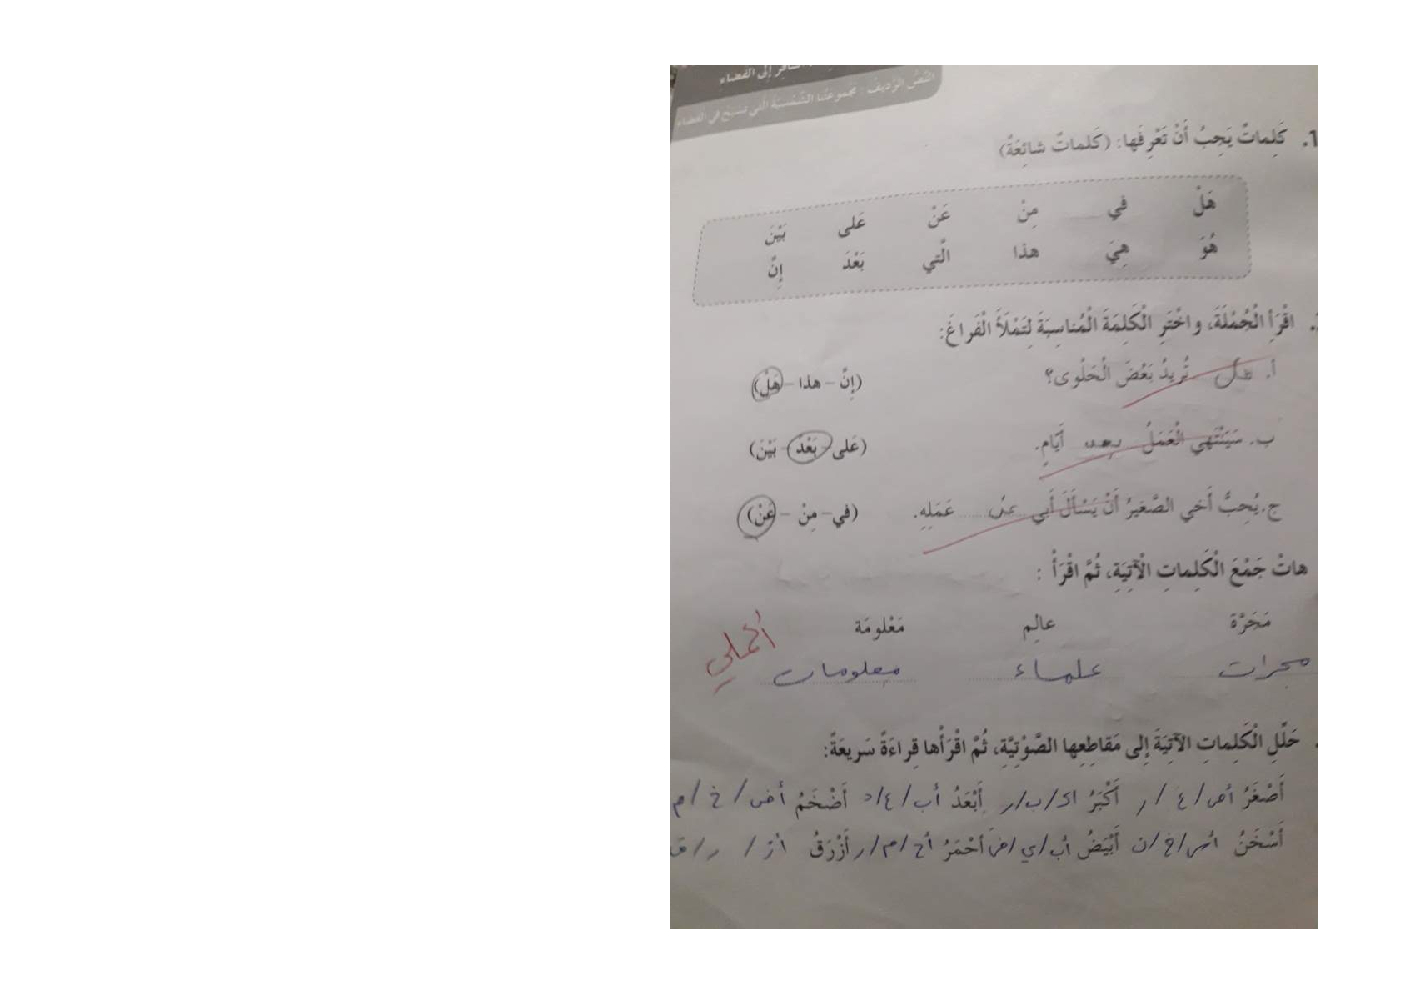 إلى الفضاء
النص الرديف : مجموعتنا الشمسية التي تسبح في الفضاء
1. كَلِماتٌ يَجِبُ أَنْ تَعْرِفَها: (كَلماتٌ شائِعَةٌ)
هَلْ في مِنْ عَنْ عَلى بَيْنَ
هُوَ هِيَ هذا الَّتي بَعْدَ إِنَّ
اقْرَأِ الْجُمْلَةَ، واخْتَرِ الْكَلِمَةَ الْمُناسِبَةَ لِتَمْلَأَ الْفَراغَ:
أ. هل تُريدُ بَعْضَ الْحَلْوى؟ (إِنَّ - هذا - هَلْ)
ب. سَيَنْتَهي الْعَمَلُ بعد أَيّامٍ. (عَلى - بَعْدَ - بَيْنَ)
ج. يُحِبُّ أَخي الصَّغيرُ أَنْ يَسْأَلَ أَبي عن عَمَلِهِ. (في - مِنْ - عَنْ)
هاتْ جَمْعَ الْكَلِماتِ الْآتِيَةِ، ثُمَّ اقْرَأْ :
مَجَرَّة عالِم مَعْلومَة
مجرات علماء معلومات
أكملي
حَلِّلِ الْكَلِماتِ الآتِيَةَ إِلى مَقاطِعِها الصَّوْتِيَّةِ، ثُمَّ اقْرَأْها قِراءَةً سَريعَةً:
أَصْغَرُ أص/غ/ر أَكْبَرُ اك/ب/ر أَبْعَدُ أب/ع/د أَضْخَمُ أض/خ/م
أَسْخَنُ أس/خ/ن أَبْيَضُ أب/ي/ض أَحْمَرُ أح/م/ر أَزْرَقُ أز/ر/ق